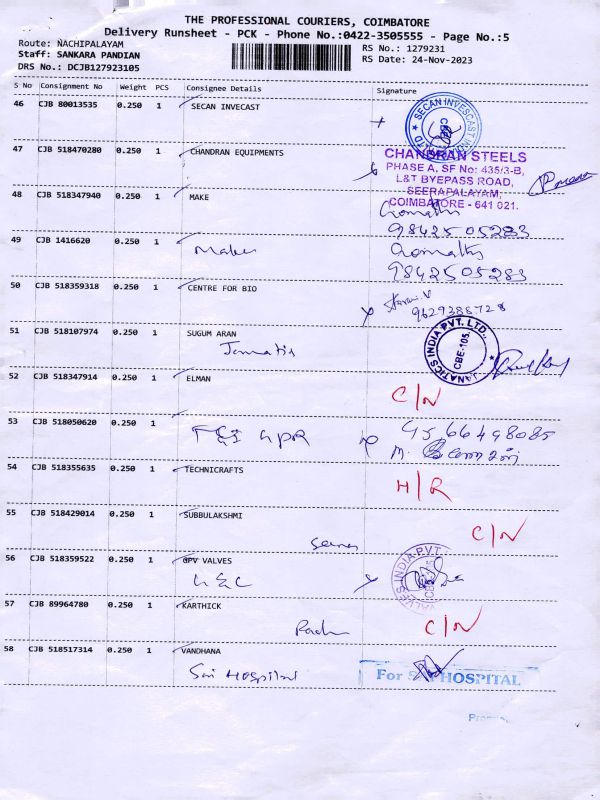 THE PROFESSIONAL COURIERS, COIMBATORE
Delivery Runsheet - PCK - Phone No.:0422-3505555 - Page No.:5
Route: NACHIPALAYAM
RS No.: 1279231
Staff: SANKARA PANDIAN
RS Date: 24-Nov-2023
DRS No.: DCJB127923105
S No Consignment No Weight PCS Consignee Details Signature
46 CJB 80013535 0.250 1 SECAN INVECAST
SECAN INVESCAST INDIA
47 CJB 518470280 0.250 1 CHANDRAN EQUIPMENTS
CHANDRAN STEELS
PHASE A, SF No: 435/3-B,
L&T BYEPASS ROAD,
SEERAPALAYAM,
COIMBATORE - 641 021.
48 CJB 518347940 0.250 1 MAKE
Gomathi
9842505283
49 CJB 1416620 0.250 1
Gomathy
9842505283
50 CJB 518359318 0.250 1 CENTRE FOR BIO
9629388728
51 CJB 518107974 0.250 1 SUGUM ARAN
JANATICS INDIA PVT. LTD.,
CBE-105.
52 CJB 518347914 0.250 1 ELMAN
C/N
53 CJB 518050620 0.250 1
9566498085
54 CJB 518355635 0.250 1 TECHNICRAFTS
H/R
55 CJB 518429014 0.250 1 SUBBULAKSHMI
C/N
56 CJB 518359522 0.250 1 GPV VALVES
VALVES INDIA PVT.
57 CJB 89964780 0.250 1 KARTHICK
C/N
58 CJB 518517314 0.250 1 VANDHANA
Sai Hospital
For HOSPITAL